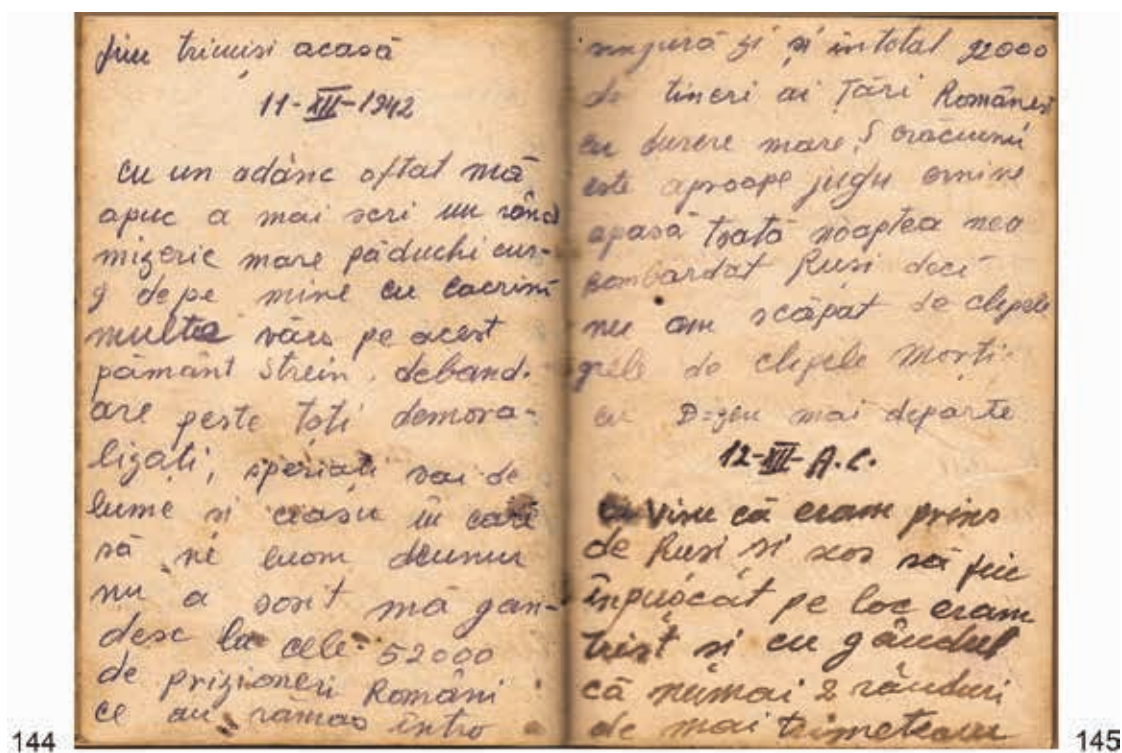 fiu trimiși acasă
11-XII-1942
cu un adânc oftat mă
apuc a mai scri un rând
mizerie mare păduchi cur-
g depe mine cu lacrimi
multe vărs pe acest
pământ strein, deband-
are peste toți demora-
lizați, speriați vai de
lume și ceasu în care
să ne luom drumur
nu a sosit mă gân-
desc la cele 52000
de prizioneri Români
ce au rămas întro
144
singură zi și în total 92000
de tineri ai Țări Românești
cu durere mare, crăciunu
este aproape jugu
apasă toată noaptea neo
bombardat Ruși deci
nu am scăpat de clipele
grele de clipele Morți.
cu D-zeu mai departe
12-XII-A.C.
Visu că eram prins
de Ruși și scos să fiu
înpușcat pe loc eram
trist și cu gândul
că numai 2 rânduri
de mai trimeteam
145